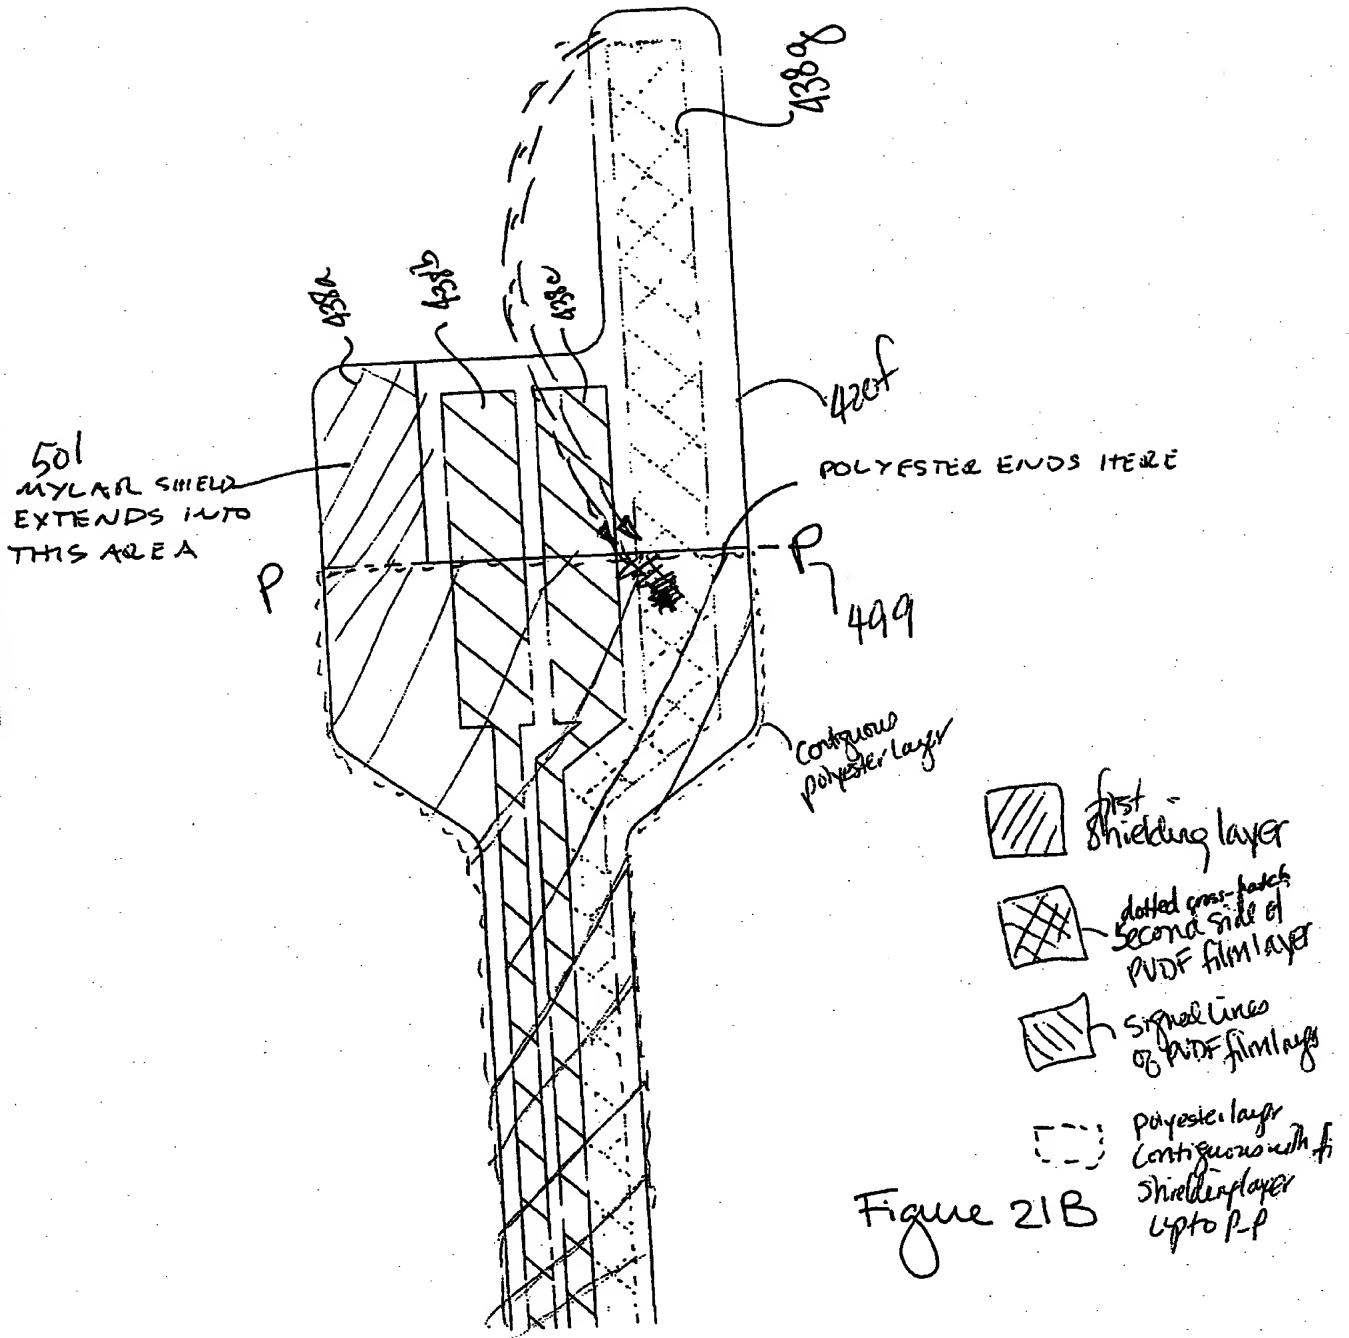 438g
438a
438b
438c
420f
501
MYLAR SHIELD
EXTENDS INTO
THIS AREA
POLYESTER ENDS HERE
P
P
499
contiguous
polyester layer
first
shielding layer
dotted cross-hatch
second side of
PVDF film layer
signal lines
of PVDF film
polyester layer
contiguous with
shielding layer
up to P-P
Figure 21B